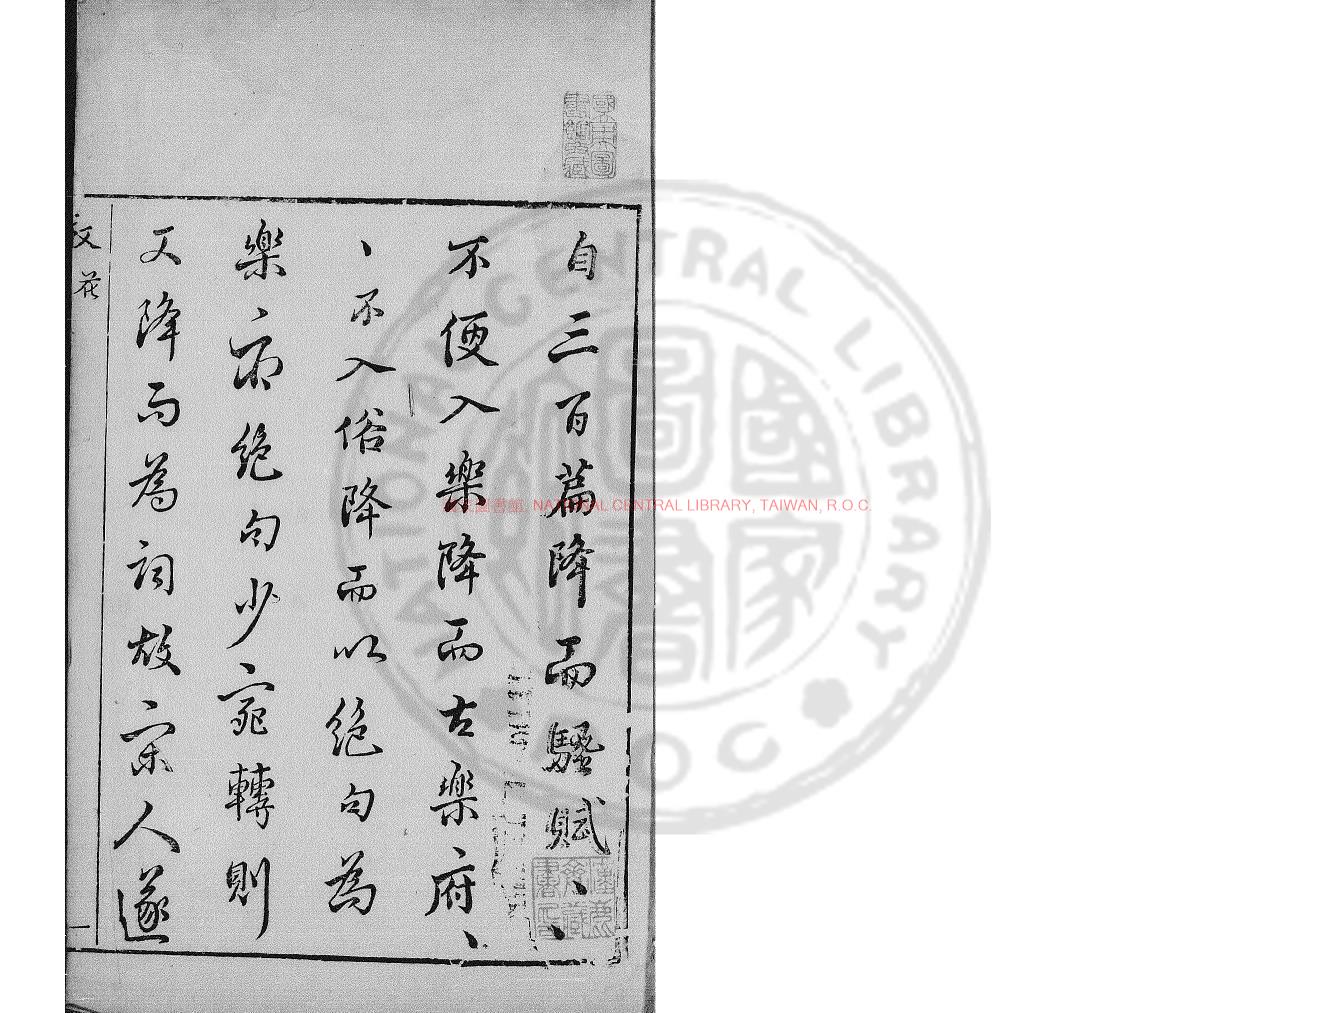 自三百篇降而騷賦、、
不便入樂降而古樂府、
、不入俗降而以絕句為
樂府絕句少宛轉則
又降而為詞故宋人遂
花
一
國家圖書館, NATIONAL CENTRAL LIBRARY, TAIWAN, R.O.C.
NATIONAL CENTRAL LIBRARY
R.O.C.
國家圖書